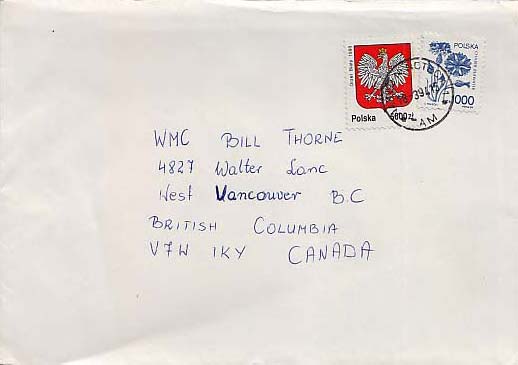 POLSKA
Orzeł Biały 1989
Polska 5000zł
000
WMC BILL THORNE
4827 Walter Lanc
West Vancouver B.C
BRITISH COLUMBIA
V7W IKY CANADA